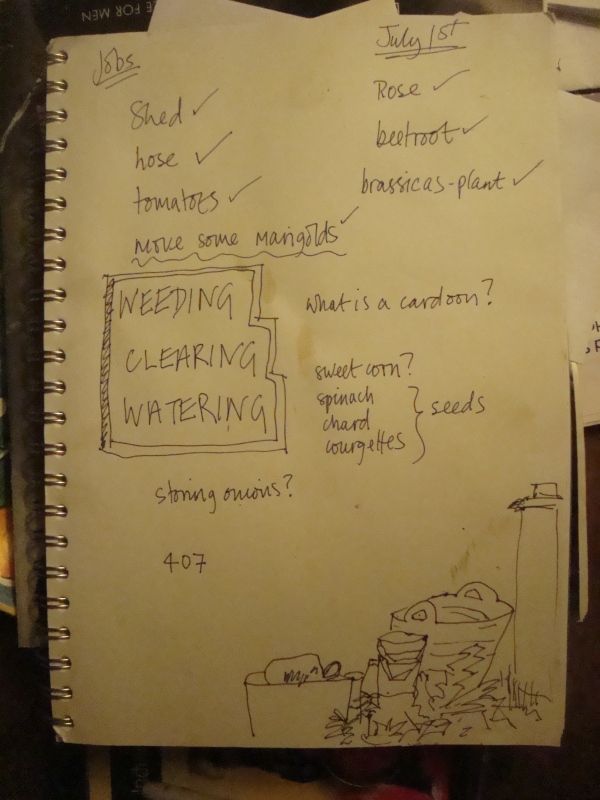 E FOR MEN
Jobs
July 1st
Shed ✓
hose ✓
tomatoes ✓
move some marigolds ✓
Rose ✓
beetroot ✓
brassicas-plant ✓
WEEDING
CLEARING
WATERING
what is a cardoon?
sweetcorn?
spinach
chard
courgettes
seeds
storing onions?
407